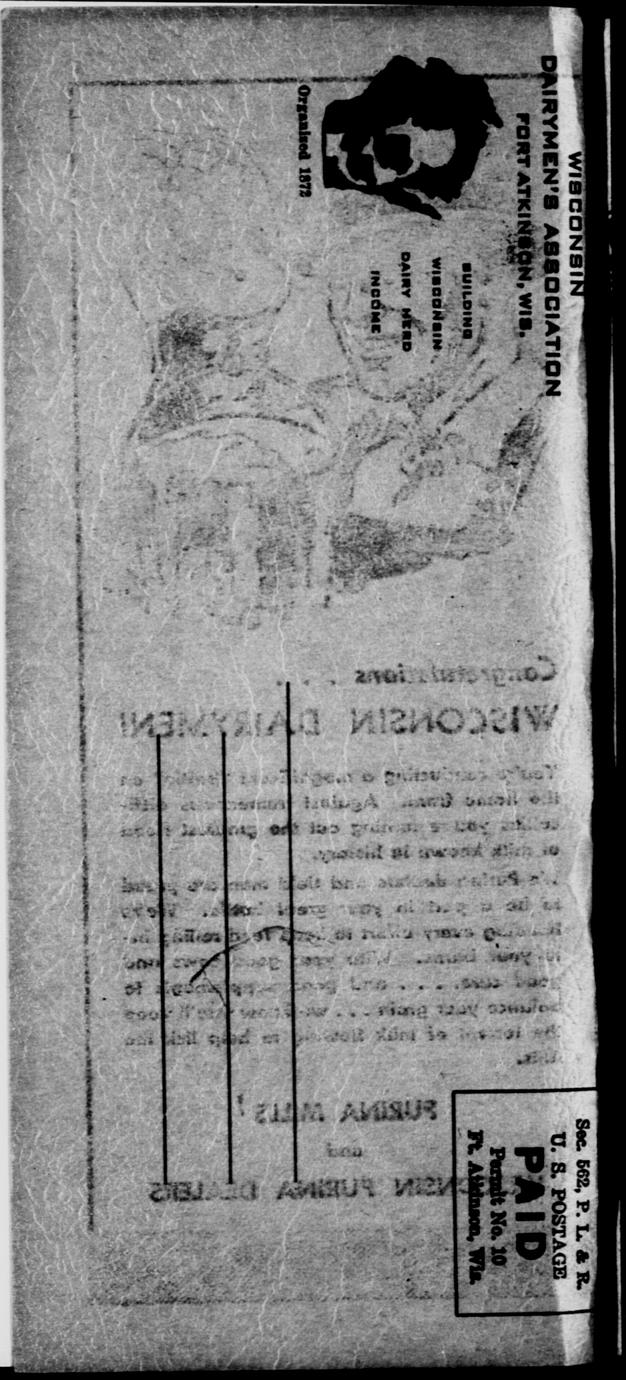 WISCONSIN
DAIRYMEN'S ASSOCIATION
FORT ATKINSON, WIS.
BUILDING
WISCONSIN
DAIRY HERD
INCOME
Organized 1872
Sec. 562, P. L. & R.
U. S. POSTAGE
PAID
Permit No. 10
Ft. Atkinson, Wis.
Congratulations . . .
WISCONSIN DAIRYMEN!
You're conducting a magnificent on
the home front. Against numerous diffi-
you're turning out the greatest
of milk known in history.
Purina dealers and field men are proud
to be a part in your great battle. We're
making every effort to keep feed rolling
to your barns. With your good cows and
good care, . . . and to
balance your grain . . . we know
the torrent of milk flowing to help lick the
PURINA MILLS
and
WISCONSIN PURINA DEALERS